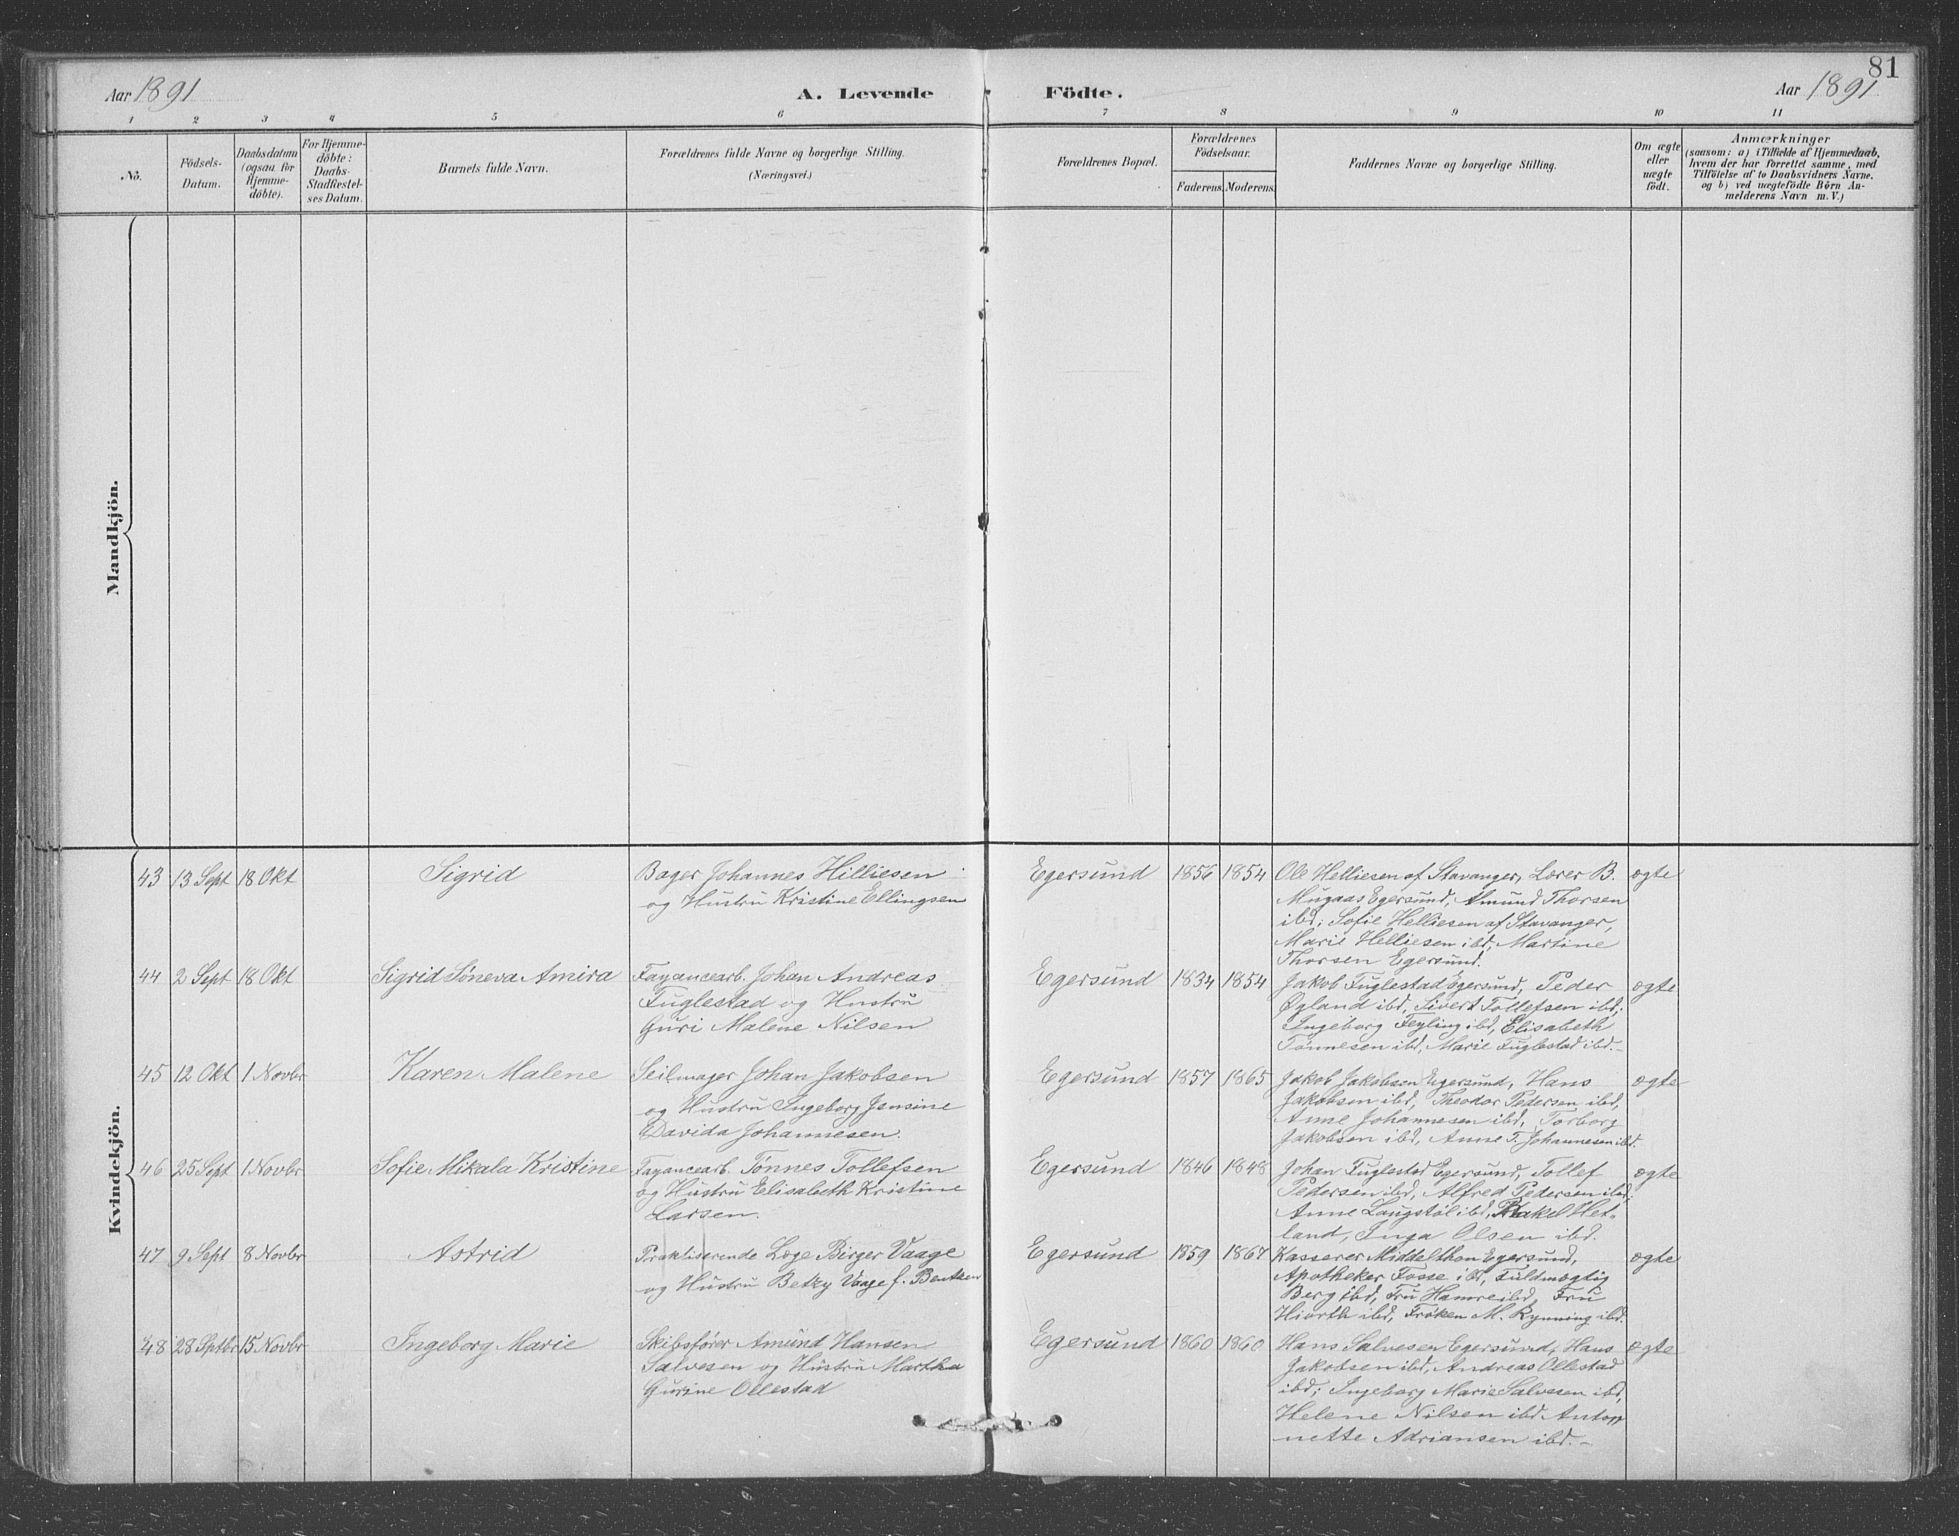 81
Aar 1891
A. Levende Födte.
Aar 1891
1 2 3 4 5 6 7 8 9 10 11
No.
Födsels-
Datum.
Daabsdatum
(ogsaa for
Hjemme-
döbte).
For Hjemme-
döbte:
Daabs-
Stadfæstel-
ses Datum.
Barnets fulde Navn.
Forældrenes fulde Navne og borgerlige Stilling.
(Næringsvei.)
Forældrenes Bopæl.
Forældrenes
Födselsaar.
Faderens. Moderens.
Faddernes Navne og borgerlige Stilling.
Om ægte
eller
uægte
födt.
Anmærkninger
(saasom: a) i Tilfælde af Hjemmedaab,
hvem der har forrettet samme, med
Tilföielse af to Daabsvidners Navne,
og b) ved uægtefödte Börn An-
melderens Navn m. V.)
Mandkjön.
Kvindekjön.
43 13 Sept 18 Okt Sigrid
Bager Johannes Hilliesen
og Hustru Kristine Ellingsen
Egersund 1856 1854
Ole Helliesen af Stavanger, Lærer B.
Mugaas Egersund, Amund Thorsen
ibd, Sofie Helliesen af Stavanger,
Marie Helliesen ibd, Martine
Thorsen Egersund.
ægte
44 2 Sept 18 Okt Sigrid Søneva Amira
Fayancearb. Johan Andreas
Fuglestad og Hustru
Guri Malene Nilsen
Egersund 1834 1854
Jakob Fuglestad Egersund, Peder
Øgland ibd, Sivert Tollefsen ibd,
Ingeborg Feyling ibd, Elisabeth
Tønnesen ibd, Marie Fuglestad ibd.-
ægte
45 12 Okt 1 Novbr Karen Malene
Seilmager Johan Jakobsen
og Hustru Ingeborg Jensine
Davida Johannesen.
Egersund 1857 1865
Jakob Jakobsen Egersund, Hans
Jakobsen ibd, Theodor Pedersen ibd,
Anne Johannesen ibd, Torborg
Jakobsen ibd, Anne T. Johannesen ibd.
ægte
46 25 Sept 1 Novbr Sofie Mikala Kristine
Fayancearb. Tønnes Tollefsen
og Hustru Elisabeth Kristine
Larsen.
Egersund 1846 1848
Johan Fuglestad Egersund, Tollef
Pedersen ibd, Alfred Pedersen ibd,
Anne Langstøl ibd, Rakel Het-
land, Inga Olsen ibd.
ægte
47 9 Sept 8 Novbr Astrid
Praktiserende Læge Birger Vaage
og Hustru Betzy Vaage f. Bentzen
Egersund 1859 1867
Kasserer Middelthon Egersund,
Apotheker Fosse ibd, Fuldmægtig
Berg ibd, Fru Hamre ibd, Fru
Hiorth ibd, Frøken M. Rynning ibd.
ægte
48 28 Sptbr 15 Novbr Ingeborg Marie
Skibsfører Amund Hansen
Salvesen og Hustru Martha
Gurine Ollestad
Egersund 1860 1860
Hans Salvesen Egersund, Hans
Jakobsen ibd, Andreas Ollestad
ibd, Ingeborg Marie Salvesen ibd,
Helene Nilsen ibd Anto-
nette Adriansen ibd.-
ægte